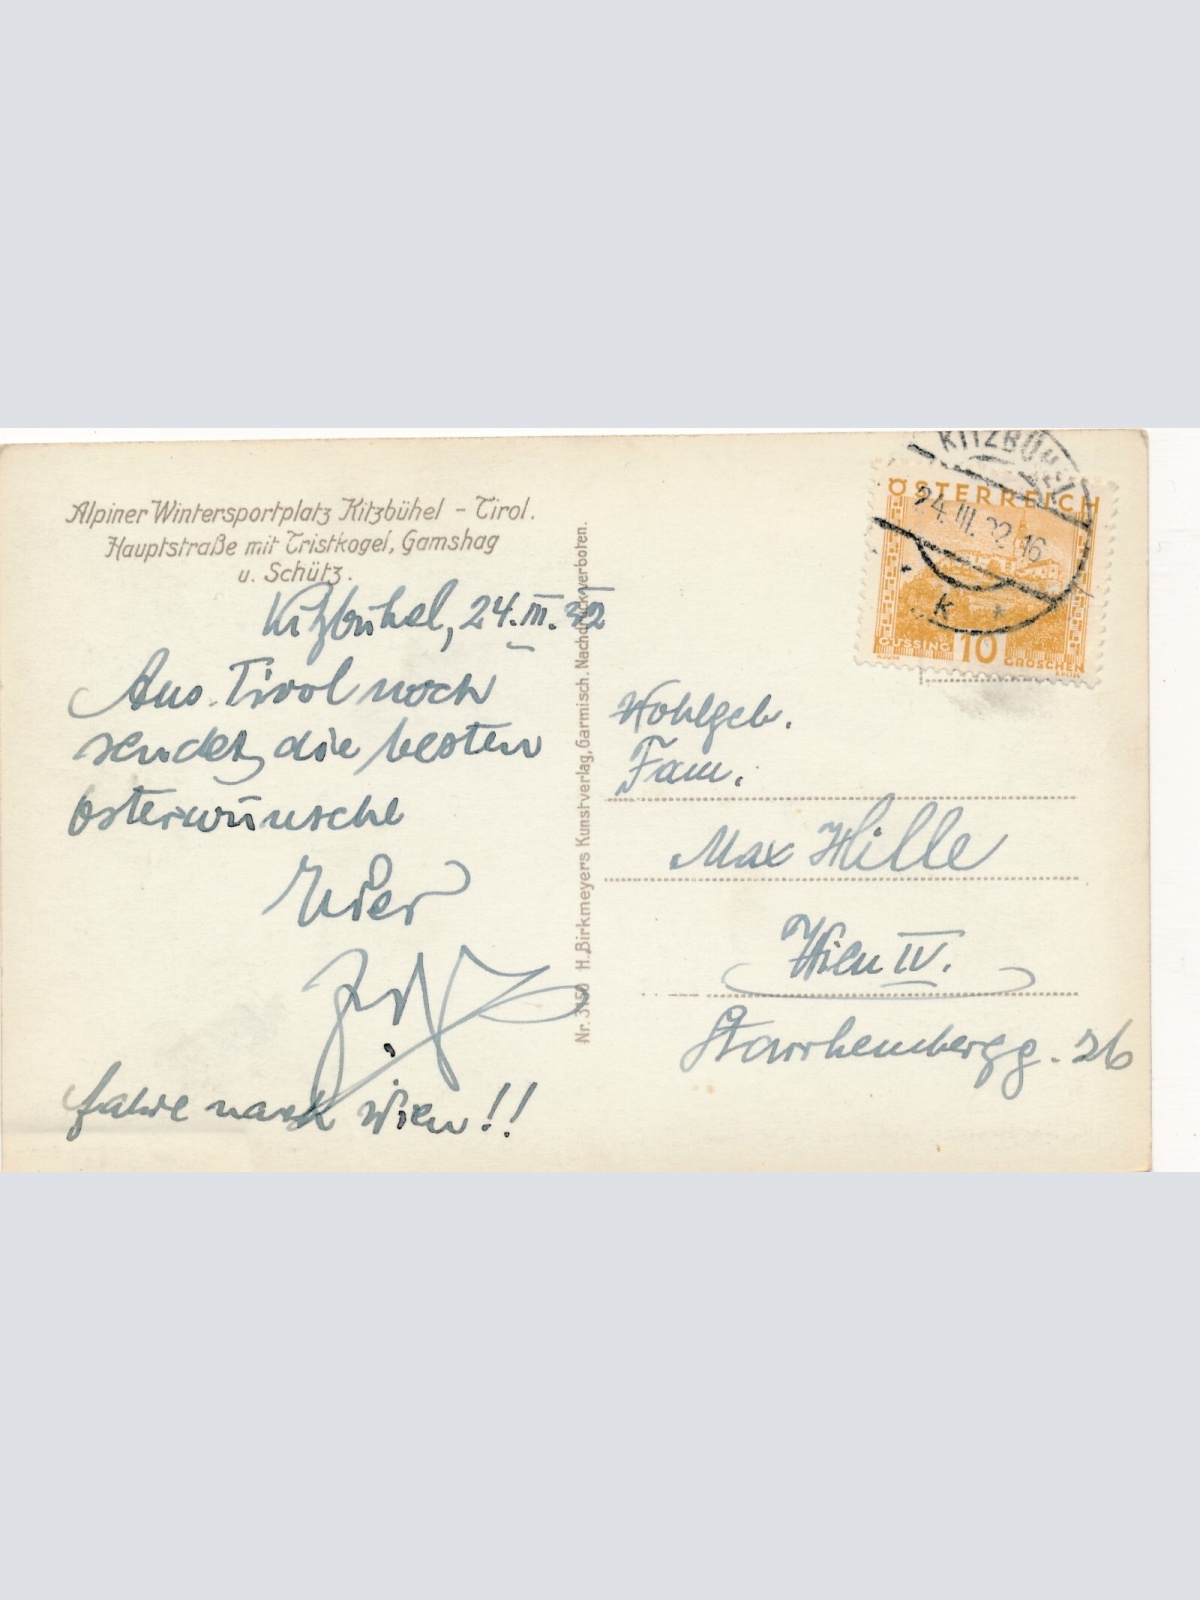 Alpiner Wintersportplatz Kitzbühel - Tirol.
Hauptstraße mit Tristkogel, Gamshag
u. Schütz.
Kitzbühel, 24.III.32
Aus Tirol noch
sendet die besten
Osterwünsche
Euer
fahre nach Wien!!
Nr. 3150 H. Birkmeyers Kunstverlag, Garmisch. Nachdruck verboten.
KITZBÜHEL
24.III.32 16
k *
ÖSTERREICH
GÜSSING 10 GROSCHEN
Wohlgeb.
Fam.
Max Hille
Wien IV.
Starrhembergg. 26